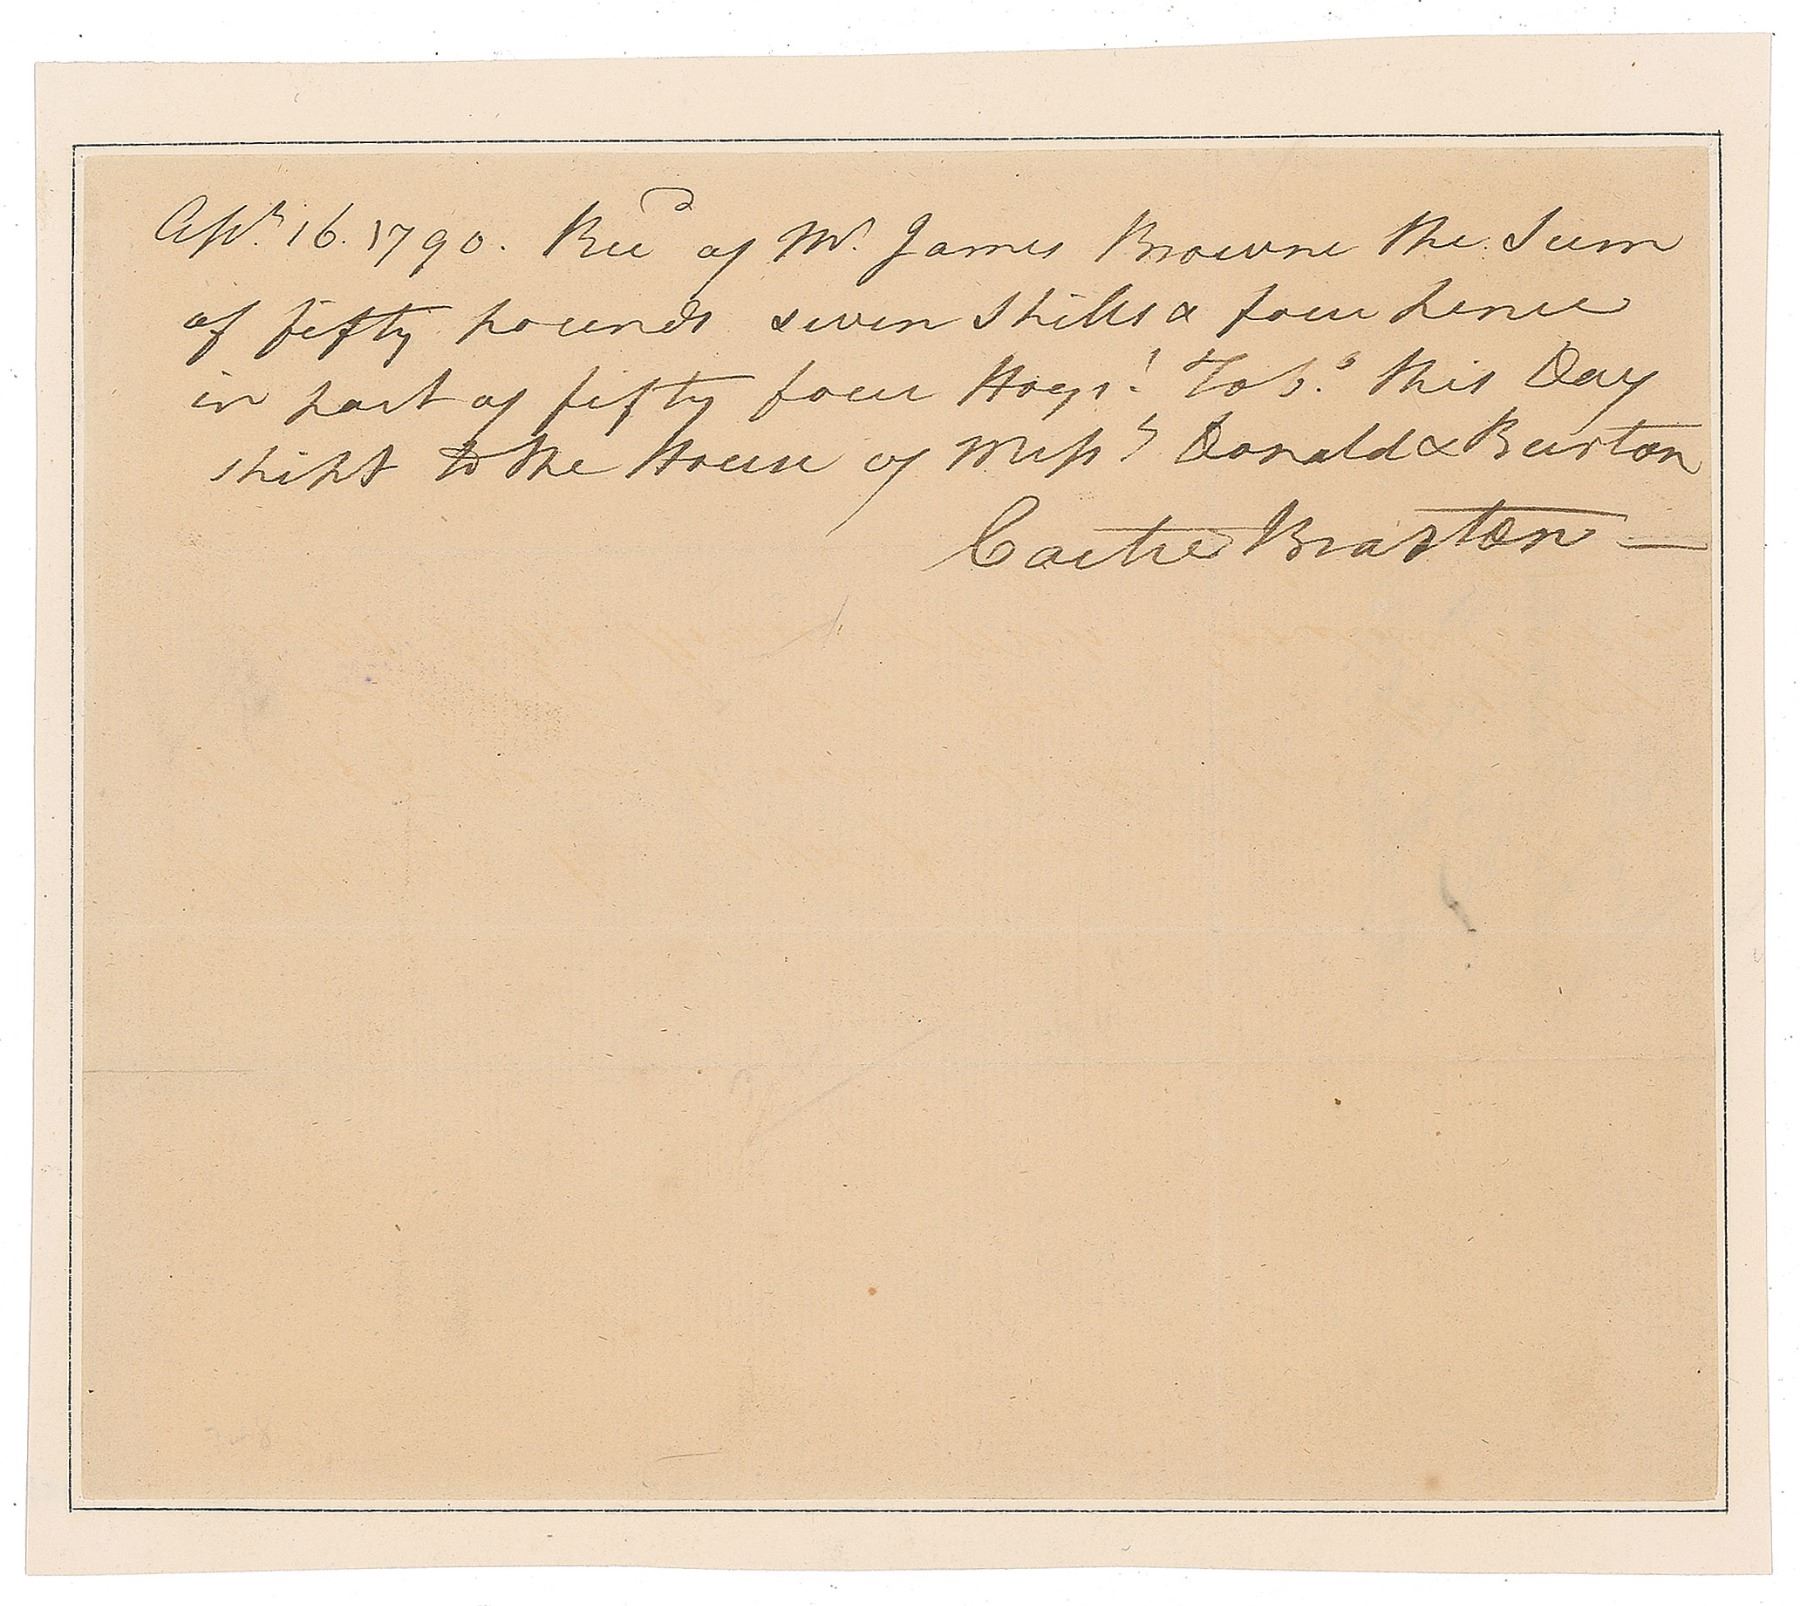 Apr. 16. 1790. Recd of Mr. James Browne the Sum
of fifty pounds seven Shills & four pence
in part of fifty four Hogs. Tobo. this Day
shipt to the House of Messrs Donald & Burton
Carter Braxton —